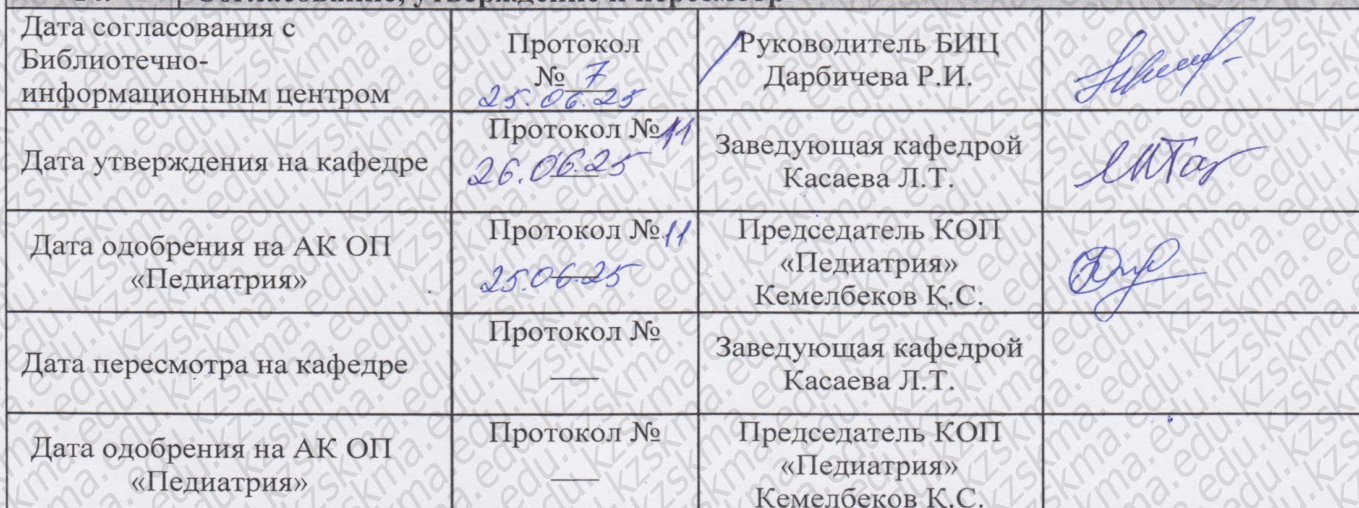 Согласование, утверждение и пересмотр
Дата согласования с
Библиотечно-
информационным центром
Протокол
№ 7
25.06.25
Руководитель БИЦ
Дарбичева Р.И.
Дата утверждения на кафедре
Протокол № 11
26.06.25
Заведующая кафедрой
Касаева Л.Т.
Дата одобрения на АК ОП
«Педиатрия»
Протокол № 11
25.06.25
Председатель КОП
«Педиатрия»
Кемелбеков Қ.С.
Дата пересмотра на кафедре
Протокол №
Заведующая кафедрой
Касаева Л.Т.
Дата одобрения на АК ОП
«Педиатрия»
Протокол №
Председатель КОП
«Педиатрия»
Кемелбеков Қ.С.